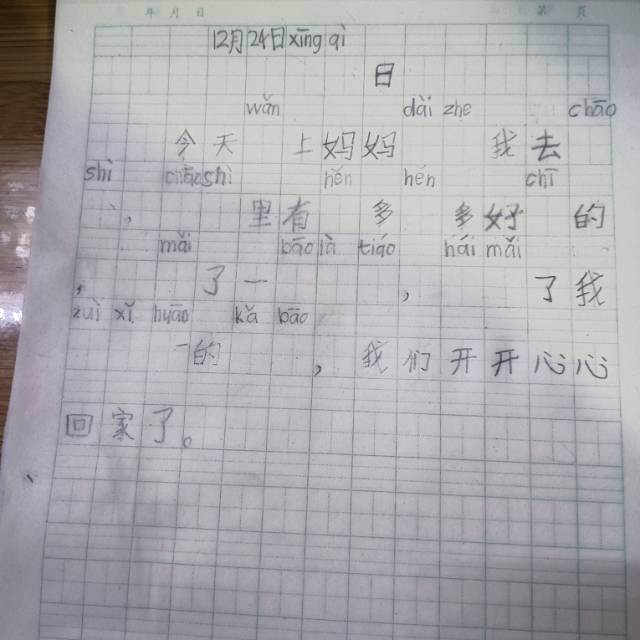 年 月 日 第 页
12月24日xīng qì
日
wǎn dài zhe chāo
今天 上妈妈 我去
shì chāoshì hěn hěn chī
, 里有 多 多好 的
mǎi bāo là tiáo hái mǎi
, 了一 , 了我
zuì xǐ huāo kǎ bāo
的 , 我们开开心心
回家了。